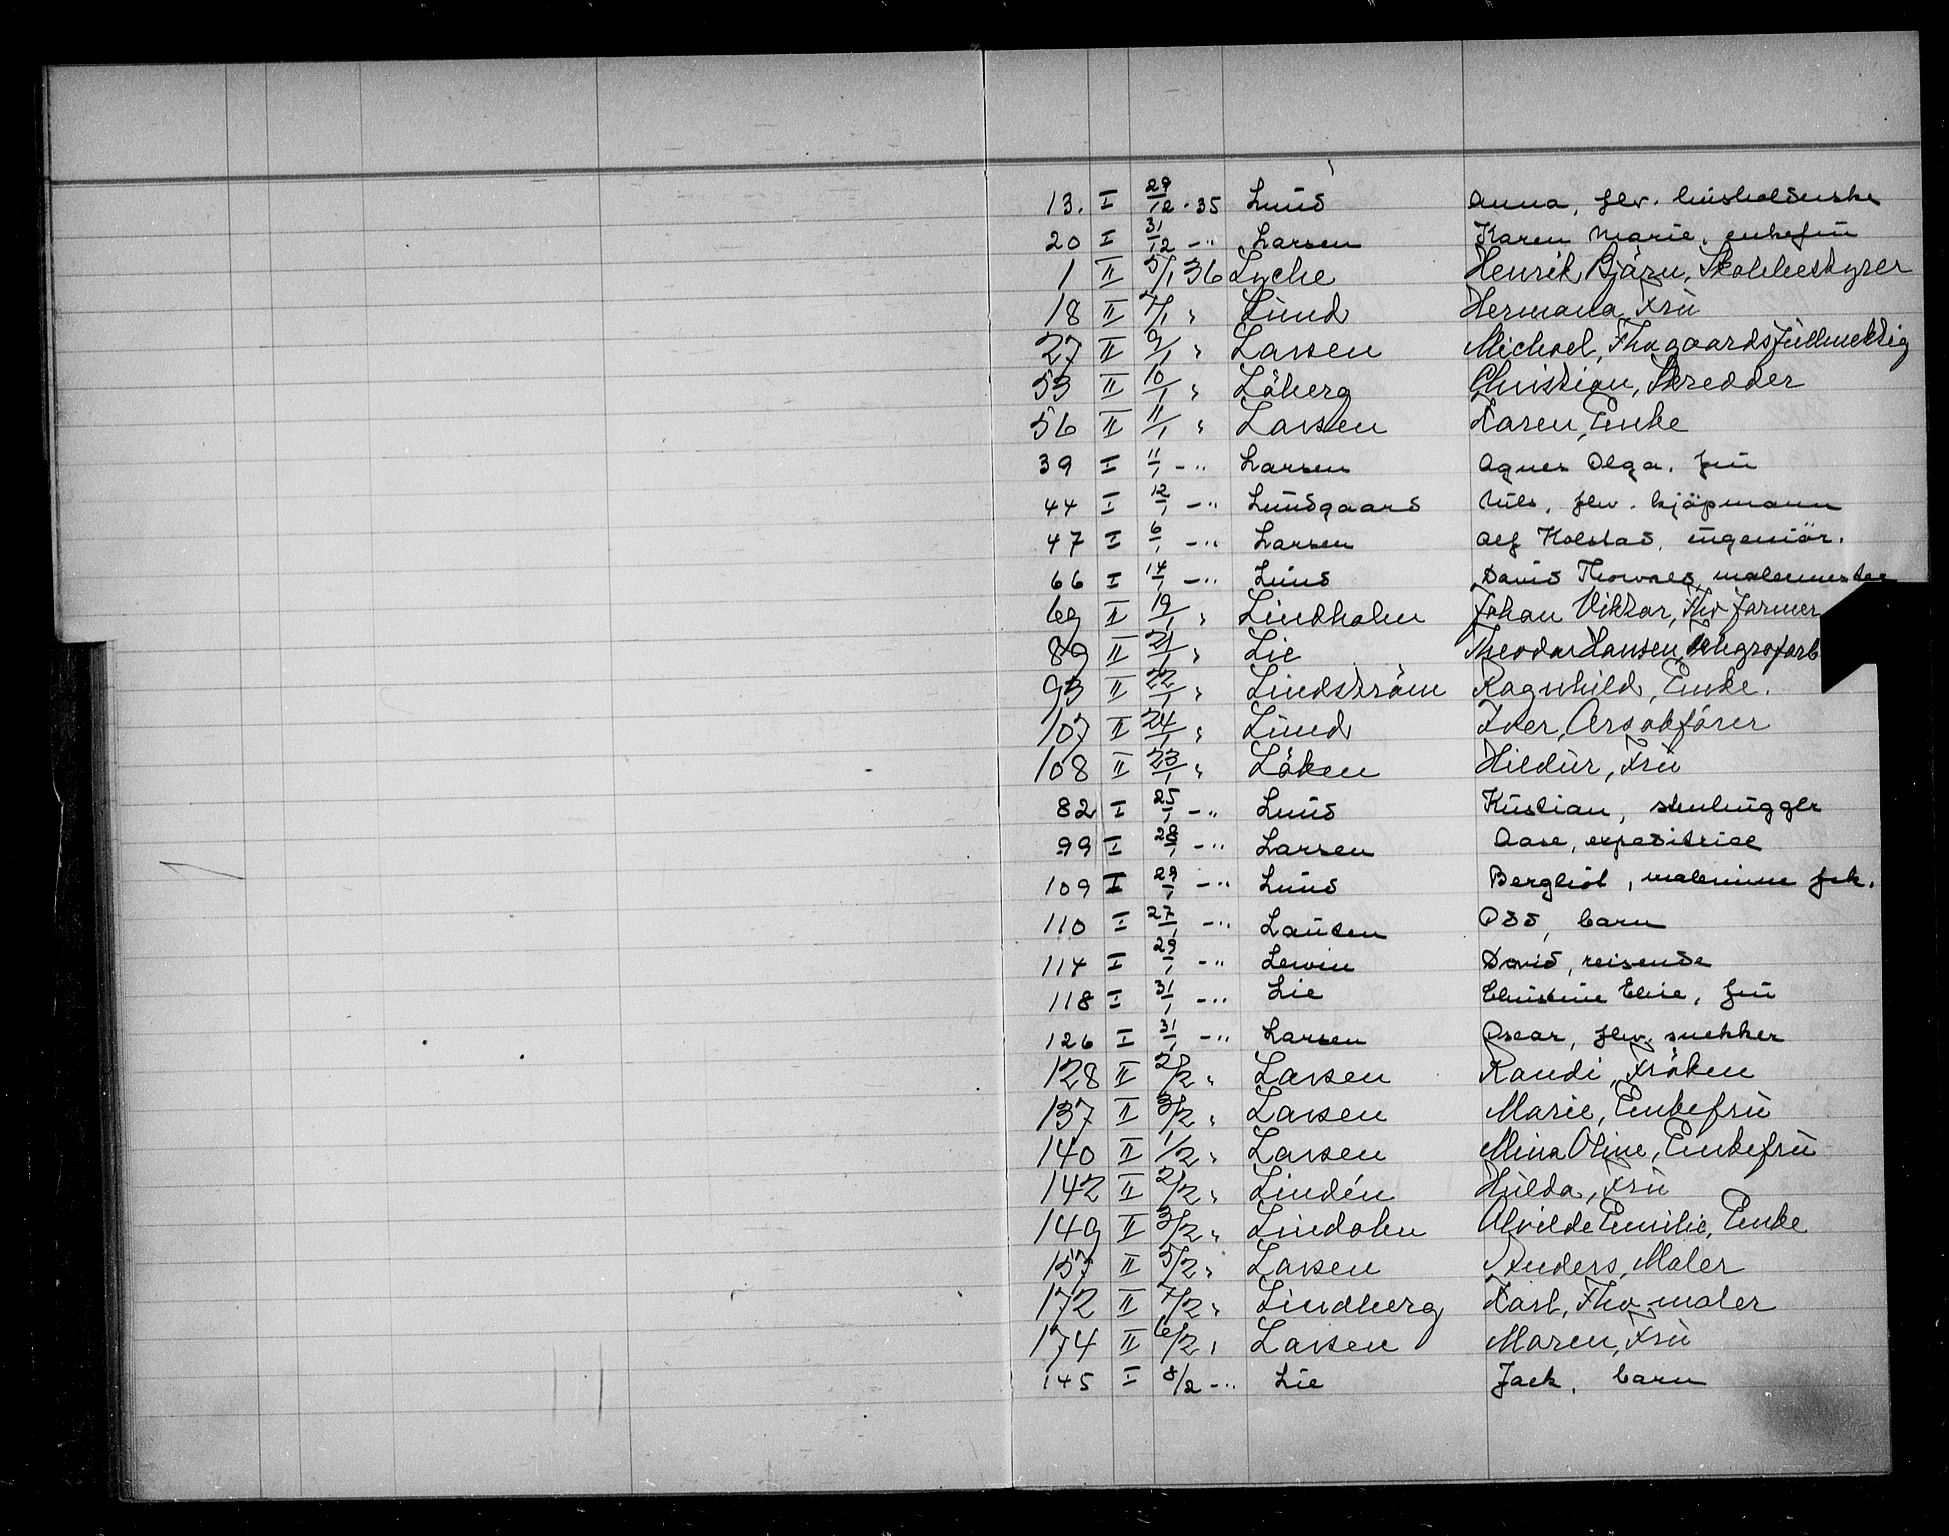 13. I 29/12 . 35 Lund Anna, fhv. husholderske
20 I 31/12 - " Larsen Karen Marie, enkefru
1 II 5/1 36 Lyche Henrik Bjärn, Skolbestyrer
18 II 7/1 " Lund Hermana, Fru
27 II 9/1 " Larsen Michael, Fhv gaardsfullmektig
53 II 10/1 " Löberg Christian, Skredder
56 II 11/1 " Larsen Karen, Enke
39 I 11/1 - " Larsen Agnes Olga, fru
44 I 12/1 - " Lundgaard Nils, fhv. kjöpmann
47 I 6/1 - " Larsen Alf Kolstad, ingeniör.
66 I 14/1 - " Lund David Thorvald, malermester
69 II 19/1 " Lindholm Johan Viktor, Fhv farmer
89 II 21/1 " Lie Theodor Hansen, Telegrafarb
93 II 22/1 " Lindström Ragnhild, Enke.
107 II 24/1 " Lund Iver, Ovsokförer
108 II 23/1 " Löken Hildur, Fru
82 I 25/1 - " Lund Kristian, stenhugger
99 I 28/1 - " Larsen Aase, expeditrice
109 I 29/1 - " Lund Bergliot, malerinne frk.
110 I 27/1 - " Lauten Odd, barn
114 I 29/1 - " Lewin David, reisende
118 I 31/1 - " Lie Christine Elise, fru
126 I 31/1 - " Larsen Oscar, fhv. snekker
128 II 2/2 " Larsen Randi, Fröken
137 II 3/2 " Larsen Marie, Enkefru
140 II 1/2 " Larsen Mina Oline, Enkefru
142 II 2/2 " Lindén Hulda, Fru
149 II 3/2 " Lindahn Alvilde Emilie, Enke
157 II 5/2 " Larsen Anders, Maler
172 II 7/2 " Lindberg Karl, Fhv maler
174 II 6/2 " Larsen Maren, Fru
145 I 8/2 - " Lie Jack, barn